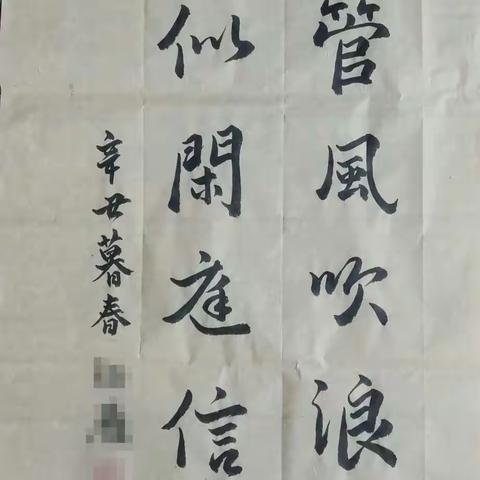 管風吹浪
似閑庭信
辛丑暮春